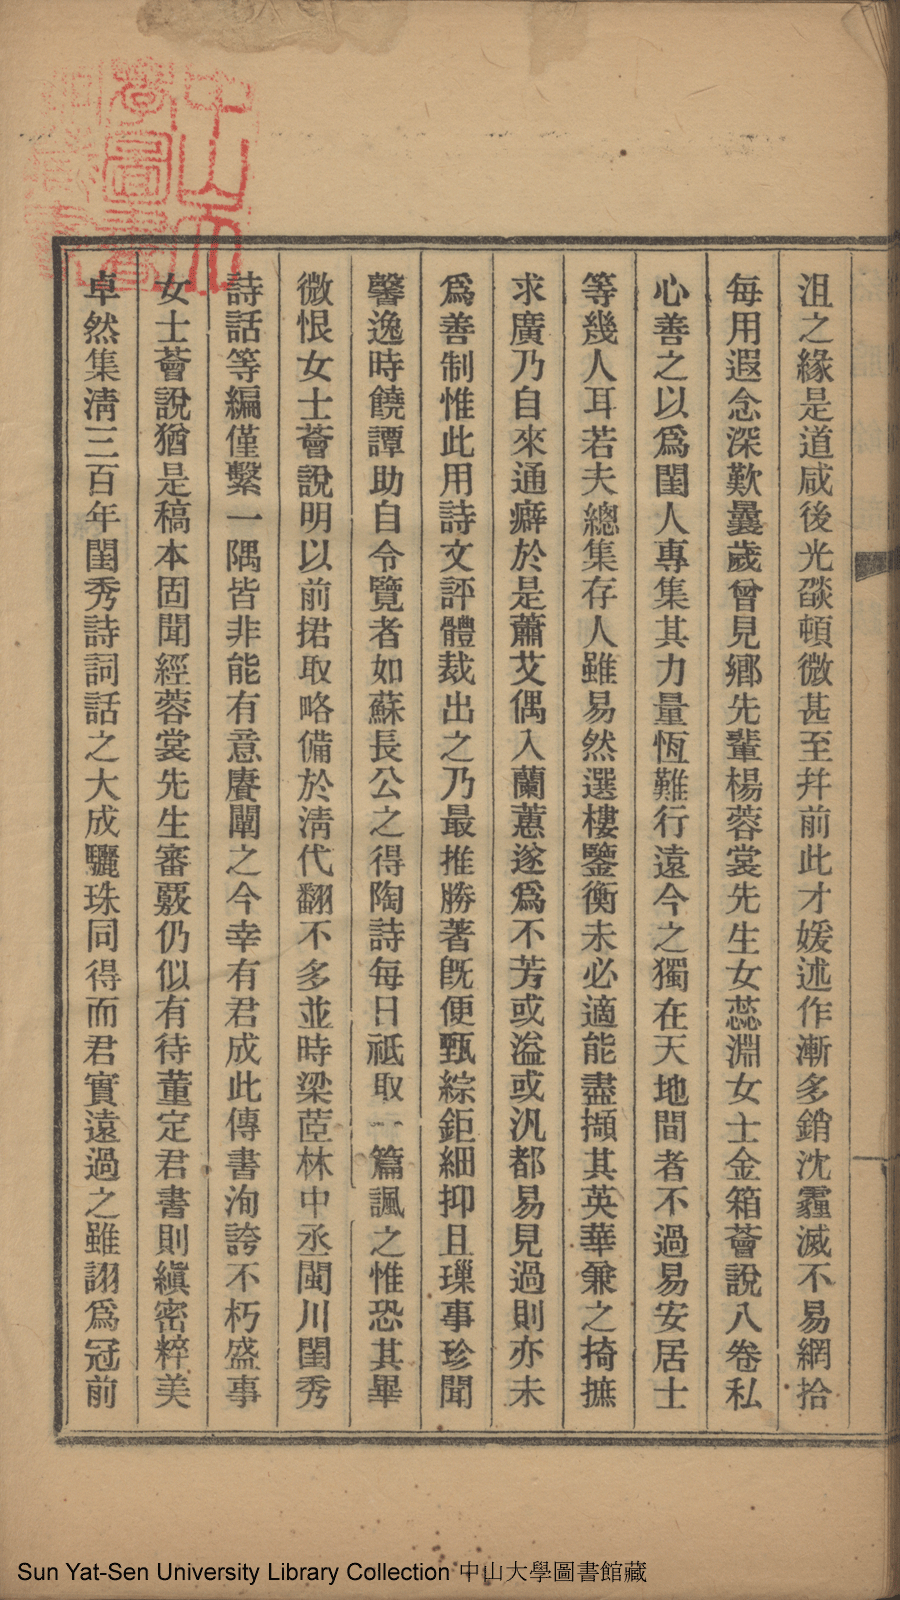 沮之緣是道咸後光燄頓微甚至幷前此才媛述作漸多銷沈霾滅不易網拾
每用遐念深歎曩歲曾見鄉先輩楊蓉裳先生女蕊淵女士金箱薈說八卷私
心善之以爲閨人專集其力量恆難行遠今之獨在天地間者不過易安居士
等幾人耳若夫總集存人雖易然選樓鑒衡未必適能盡擷其英華兼之掎摭
求廣乃自來通癖於是蕭艾偶入蘭蕙遂爲不芳或溢或汎都易見過則亦未
爲善制惟此用詩文評體裁出之乃最推勝著旣便甄綜鉅細抑且璅事珍聞
馨逸時饒譚助自令覽者如蘇長公之得陶詩每日祗取一篇諷之惟恐其畢
微恨女士薈說明以前捃取略備於淸代翻不多並時梁茝林中丞閩川閨秀
詩話等編僅繫一隅皆非能有意賡闡之今幸有君成此傳書洵誇不朽盛事
女士薈說猶是稿本固聞經蓉裳先生審覈仍似有待董定君書則縝密粹美
卓然集淸三百年閨秀詩詞話之大成驪珠同得而君實遠過之雖詡爲冠前
中山大學圖書館藏
Sun Yat-Sen University Library Collection 中山大學圖書館藏